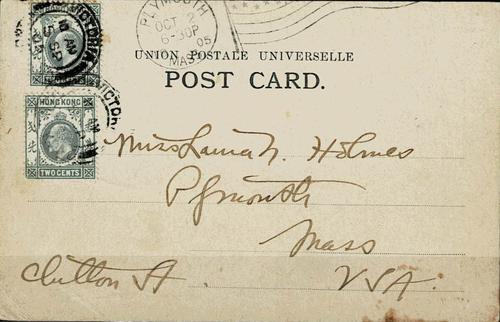 PLYMOUTH
OCT 2
6-30P
05
MASS.
VICTORIA
UNION POSTALE UNIVERSELLE
POST CARD.
HONG KONG
TWO CENTS
Miss Laura N. Holmes
Plymouth
Mass
Clifton St
USA.